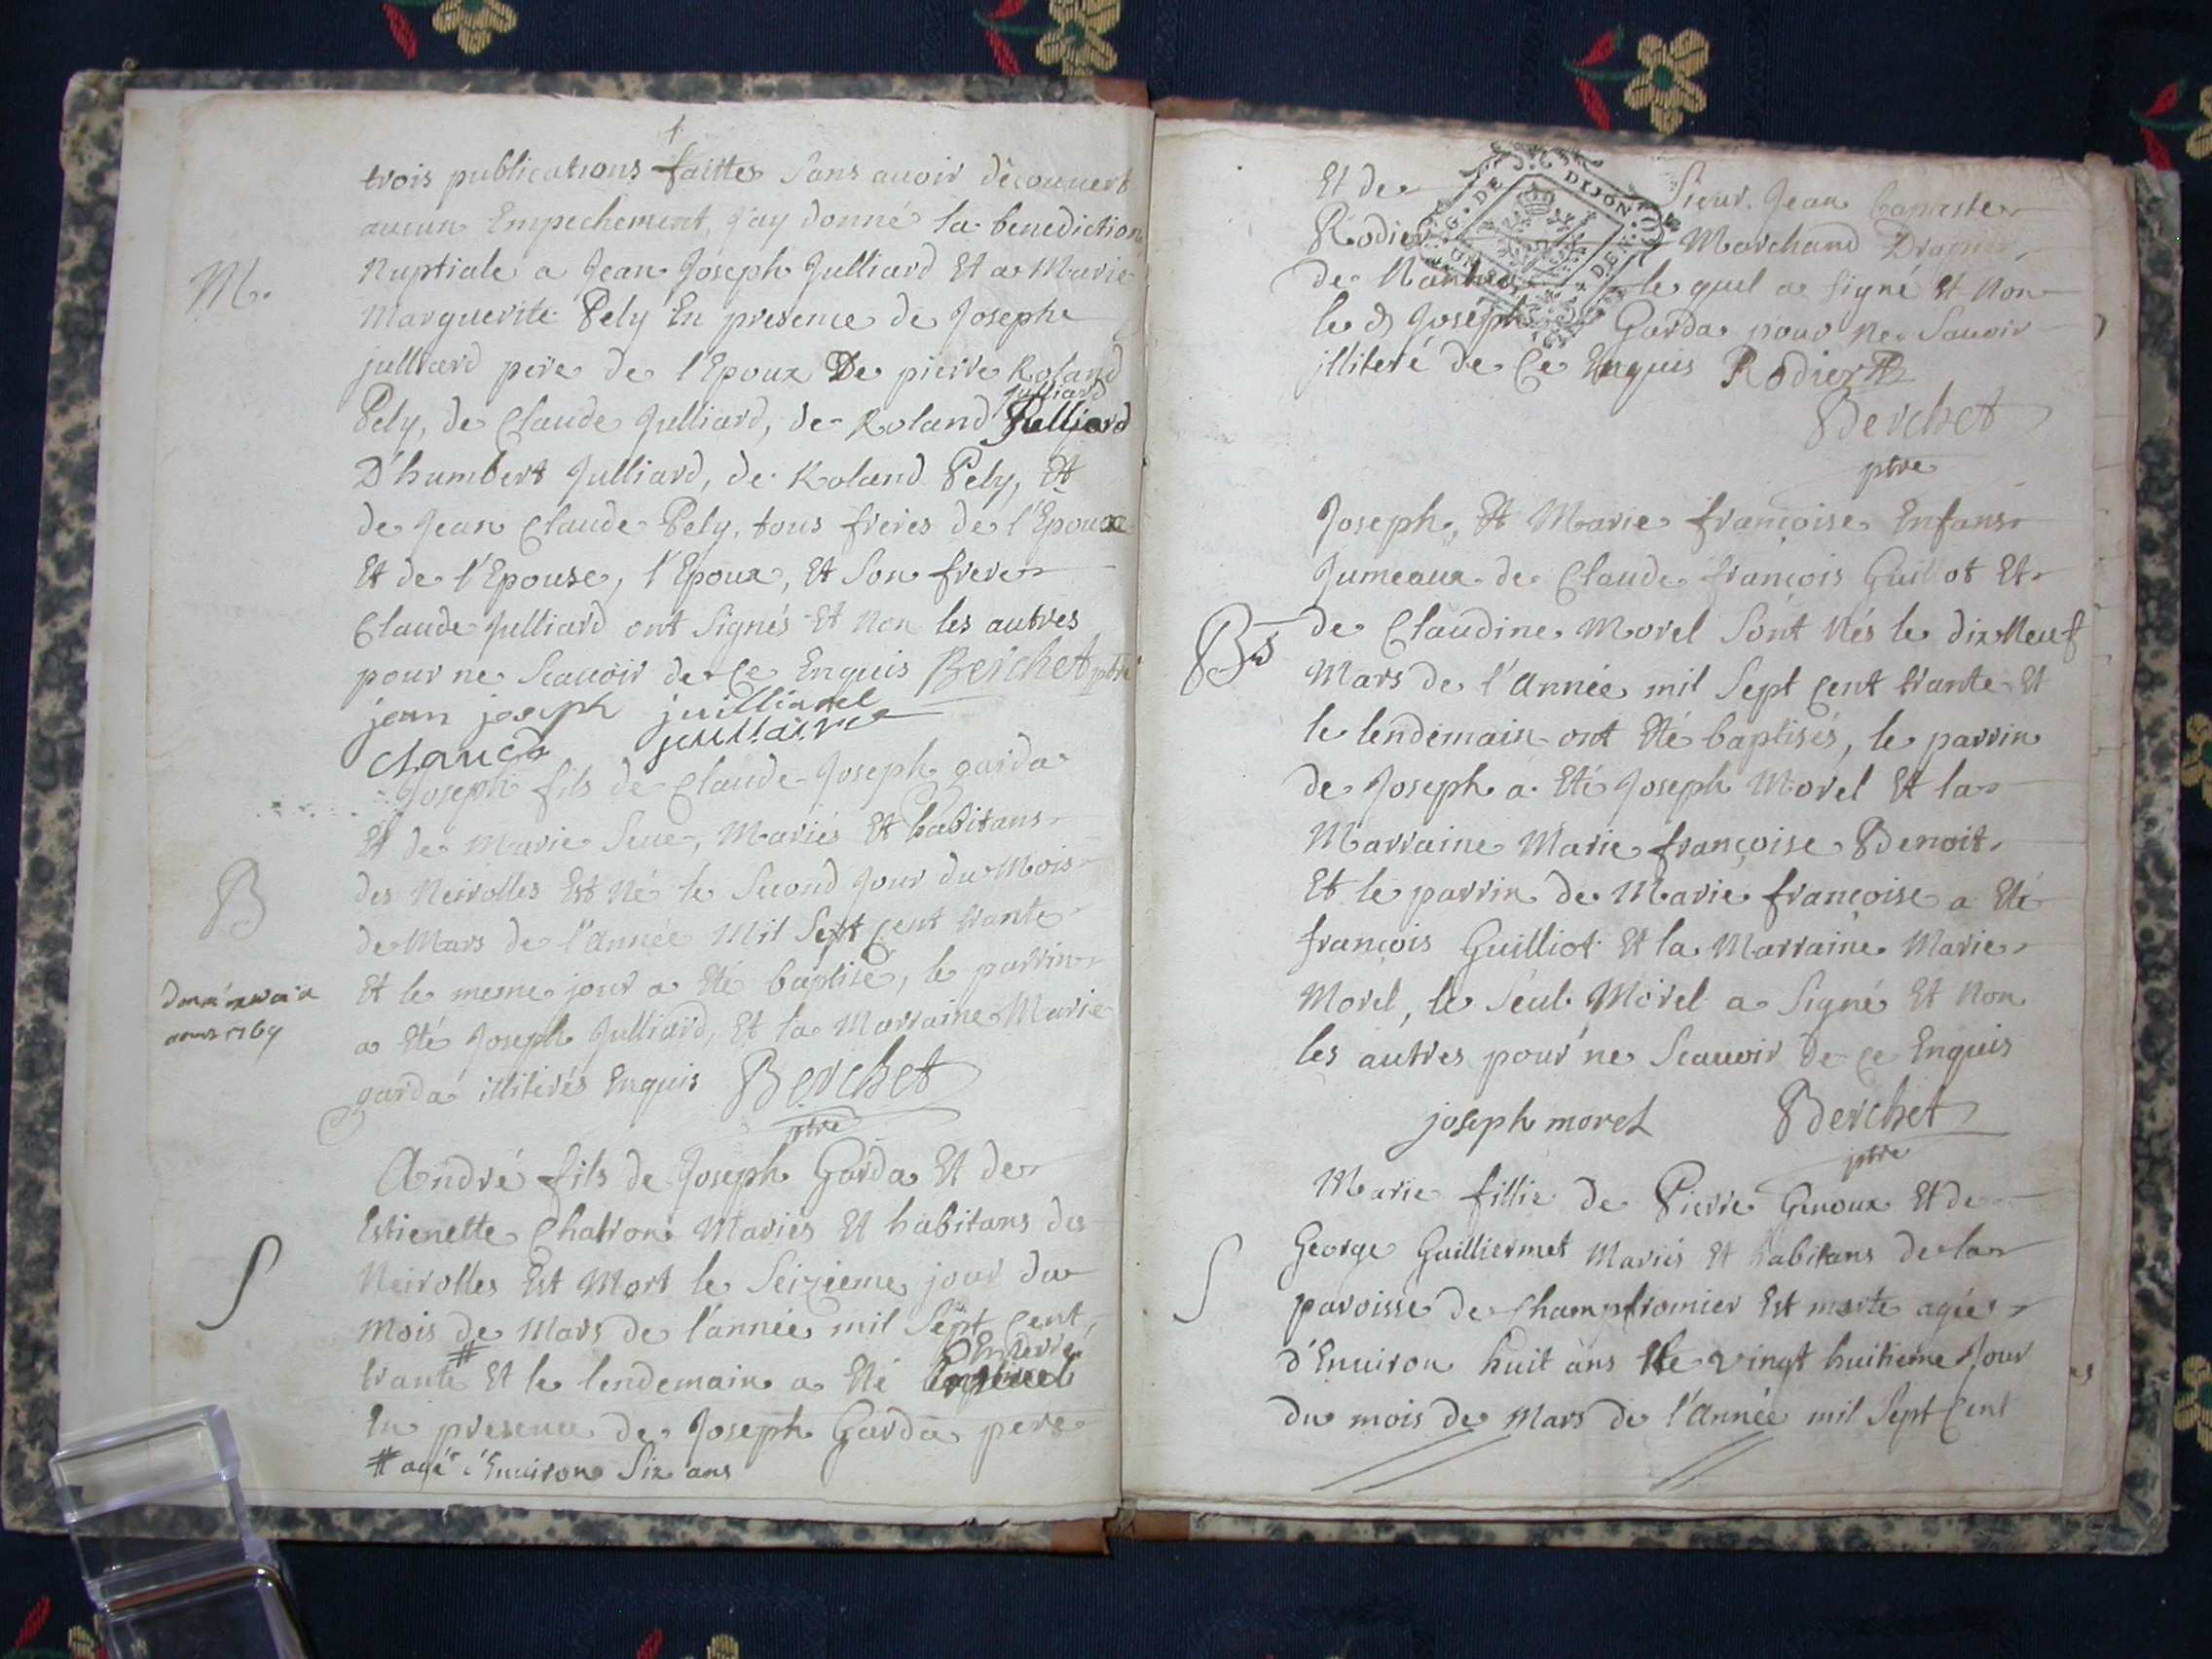 trois publications faittes Sans avoir découuert
aucun Empechement, j'ay donné la benediction
M. Nuptiale a Jean Joseph Julliard Et a Marie
Marguerite Pely En presence de Joseph
julliard pere de l'Epoux De pierre Roland
Pely, de Claude Julliard, de Roland julliard
D'humbert Julliard, de Roland Pely, Et
de Jean Claude Pely, tous freres de l'Epoux
Et de l'Epouse, l'Epoux, Et Son frere
Claude Julliard ont Signés Et Non les autres
pour ne Scauoir de Ce Enquis Berchet ptre
jean joseph juilliard
claude
Joseph fils de Claude-Joseph garda
Et de Marie Seue, Mariés Et habitans
B des Neirolles Est Né le Second Jour du Mois
de Mars de l'Année Mil Sept Cent trante
Et le meme jour a Eté baptisé, le parrin
a Eté Joseph Julliard, Et la Marraine Marie
garda illiterés Enquis Berchet
ptre
1769
André fils de Joseph Garda Et de
Estienette Chatron Mariés Et habitans des
S Neirolles Est Mort le Seizieme jour du
Mois de Mars de l'année mil Sept Cent
trante # Et le lendemain a Eté Enterré
En presence de Joseph Garda pere
# agé d'Enuiron Six ans
G. DE DIJON
Et de Sieur Jean Baptiste
Rodier Marchand Drapier
de Nantua le quel a signé Et Non
le d Joseph Garda pour Ne Sauoir
illiteré de Ce Enquis Rodier
Berchet
ptre
Joseph, Et Marie françoise Enfans
Jumeaux de Claude françois Guillot Et
Bs de Claudine Morel Sont Nés le dix Neuf
Mars de l'Année mil Sept Cent trante Et
le lendemain ont Eté baptisés, le parrin
de Joseph a Eté Joseph Morel Et la
Marraine Marie françoise Benoit
Et le parrin de Marie françoise a Eté
françois Guilliot Et la Marraine Marie
Morel, le Seul Morel a Signé Et Non
les autres pour ne Scauoir de ce Enquis
joseph morel Berchet
ptre
Marie fillie de Pierre Genoux Et de
S George Guilliermet Mariés Et habitans de la
paroisse de Champfromier Est morte agée
d'Enuiron huit ans le vingt huitieme Jour
du mois de Mars de l'Année mil Sept Cent